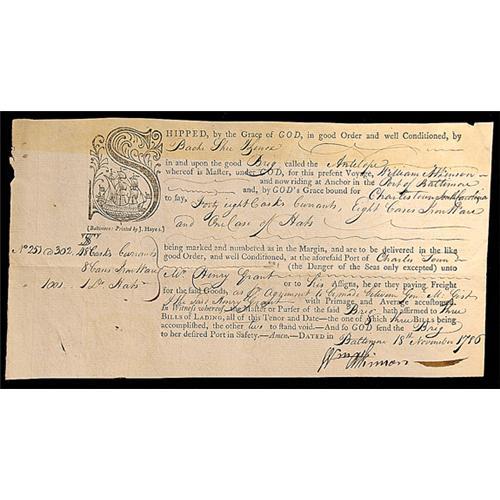 SHIPPED, by the Grace of GOD, in good Order and well Conditioned, by
in and upon the good Brig called the Antelope
whereof is Master, under GOD, for this present Voyage, William Atkinson
and now riding at Anchor in the Port of Baltimore
and, by GOD's Grace bound for Charlestown South Carolina
to say, Forty eight Casks Currants, Eight Cases Iron Ware
and One Case of Hats
(Baltimore: Printed by J. Hayes.)
being marked and numbered as in the Margin, and are to be delivered in the like
good Order, and well Conditioned, at the aforesaid Port of Charles Town
(the Danger of the Seas only excepted) unto
Mr. Henry Grant or to His Assigns, he or they paying Freight
for the said Goods, as agreement to be made between
the said Henry Grant with Primage, and Average accustomed.
In Witness whereof the Master or Purser of the said Brig hath affirmed to three
BILLS of LADING, all of this Tenor and Date—the one of which three BILLS being
accomplished, the other two to stand void.—And so GOD send the Brig
to her desired Port in Safety.—Amen.—DATED in
Baltimore 18th November 1786
No. 251 @ 302. 48 Casks Currants
8 Cases Iron Ware
1 Do. Hats
Wm Atkinson